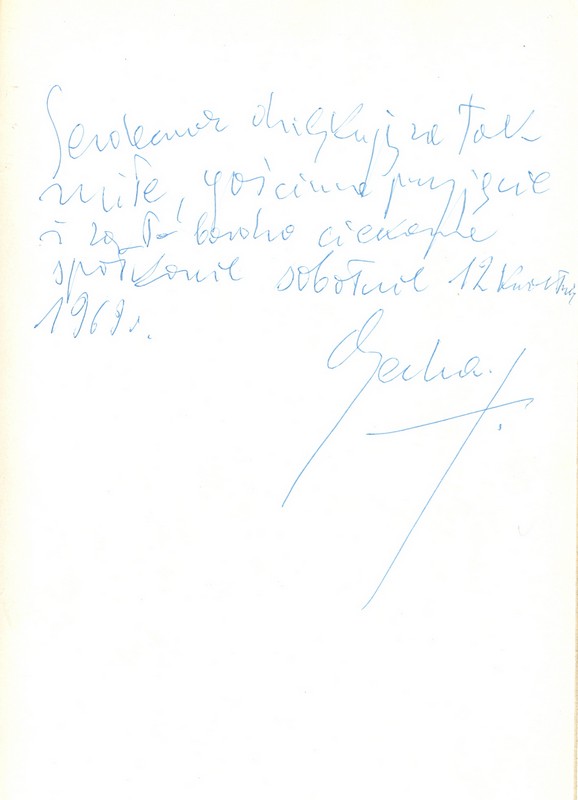 Serdecznie dziękuję za tak
miłe, gościnne przyjęcie
i za bardzo ciekawe
spotkanie sobotnie 12 kwietnia
1969 r.